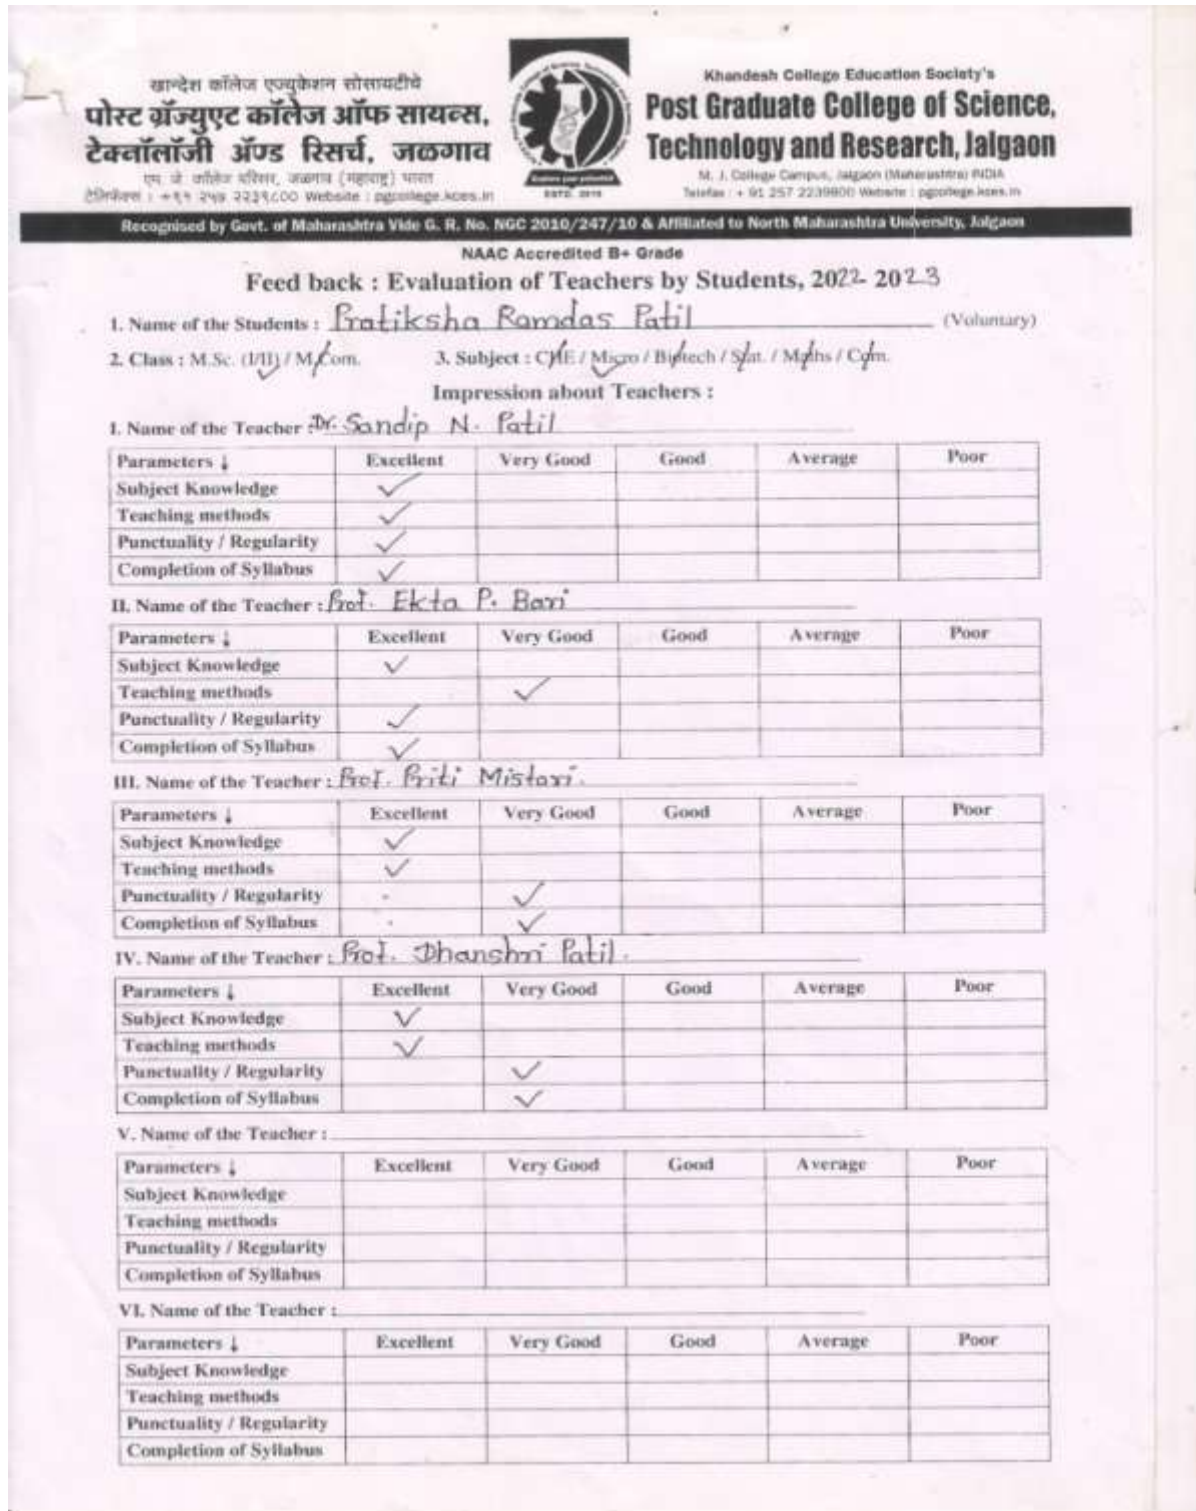 खान्देश कॉलेज एज्युकेशन सोसायटीचे
पोस्ट ग्रॅज्युएट कॉलेज ऑफ सायन्स,
टेक्नॉलॉजी ॲण्ड रिसर्च, जळगाव
एम. जे. कॉलेज परिसर, जळगाव (महाराष्ट्र) भारत
टेलिफॅक्स : +९१ २५७ २२३९८०० Website : pgcollege.kces.in
ESTD. 2010
Khandesh College Education Society's
Post Graduate College of Science,
Technology and Research, Jalgaon
M. J. College Campus, Jalgaon (Maharashtra) INDIA
Telefax : + 91 257 2239800 Website : pgcollege.kces.in
Recognised by Govt. of Maharashtra Vide G. R. No. NGC 2010/247/10 & Affiliated to North Maharashtra University, Jalgaon
NAAC Accredited B+ Grade
Feed back : Evaluation of Teachers by Students, 2022-2023
1. Name of the Students : Pratiksha Ramdas Patil (Voluntary)
2. Class : M.Sc. (I/II) / M.Com. 3. Subject : CHE / Micro / Biotech / Stat. / Maths / Com.
Impression about Teachers :
I. Name of the Teacher : Dr. Sandip N. Patil
Parameters ↓ Excellent Very Good Good Average Poor
Subject Knowledge ✓
Teaching methods ✓
Punctuality / Regularity ✓
Completion of Syllabus ✓
II. Name of the Teacher : Prof. Ekta P. Bari
Parameters ↓ Excellent Very Good Good Average Poor
Subject Knowledge ✓
Teaching methods ✓
Punctuality / Regularity ✓
Completion of Syllabus ✓
III. Name of the Teacher : Prof. Priti Mistari.
Parameters ↓ Excellent Very Good Good Average Poor
Subject Knowledge ✓
Teaching methods ✓
Punctuality / Regularity ✓
Completion of Syllabus ✓
IV. Name of the Teacher : Prof. Dhanshri Patil.
Parameters ↓ Excellent Very Good Good Average Poor
Subject Knowledge ✓
Teaching methods ✓
Punctuality / Regularity ✓
Completion of Syllabus ✓
V. Name of the Teacher :
Parameters ↓ Excellent Very Good Good Average Poor
Subject Knowledge
Teaching methods
Punctuality / Regularity
Completion of Syllabus
VI. Name of the Teacher :
Parameters ↓ Excellent Very Good Good Average Poor
Subject Knowledge
Teaching methods
Punctuality / Regularity
Completion of Syllabus